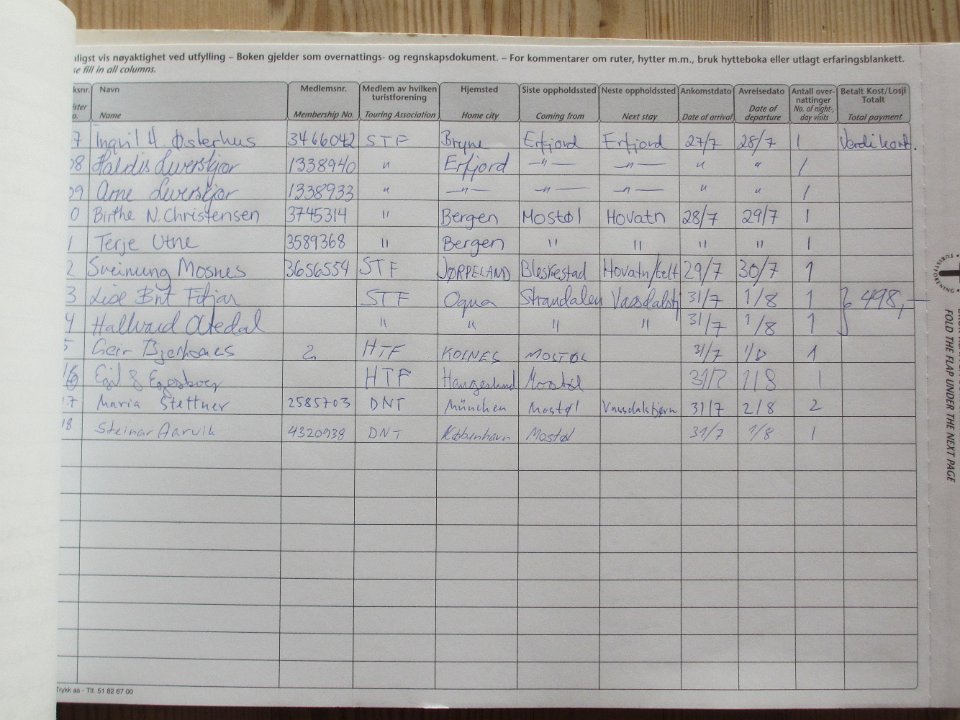 ligst vis nøyaktighet ved utfylling – Boken gjelder som overnattings- og regnskapsdokument. – For kommentarer om ruter, hytter m.m., bruk hytteboka eller utlagt erfaringsblankett.
e fill in all columns.
ksnr. Navn Medlemsnr. Medlem av hvilken turistforening Hjemsted Siste oppholdssted Neste oppholdssted Ankomstdato Avreisedato Antall over-nattinger Betalt Kost/Losji Totalt
Name Membership No. Touring Association Home city Coming from Next stay Date of arrival Date of departure No. of night-day visits Total payment
7 Ingvil H. Østerhus 3466042 STF Bryne Erfjord Erfjord 27/7 28/7 1 Verdikort.
08 Haldis 1338940 " Erfjord –"– –"– " " 1
09 Arne 1338933 " –"– –"– –"– " " 1
0 Birthe N. Christensen 3745314 " Bergen Mostøl Hovatn 28/7 29/7 1
1 Terje Utne 3589368 " Bergen " " " " 1
2 Sveinung Mosnes 3656554 STF JØRPELAND Bleskestad Hovatn/telt 29/7 30/7 1
3 Lise Brit STF Ogna Strandalen 31/7 1/8 1 } 498,–
4 Hallvard " " " " 31/7 1/8 1
5 Geir HTF KOLNES MOSTØL 31/7 1/8 1
16 HTF Mostøl 31/7 1/8 1
17 Maria Stettner 2585703 DNT München Mostøl 31/7 2/8 2
18 Steinar Aarvik 4320939 DNT København Mostøl 31/7 1/8 1
Trykk as - Tlf. 51 82 67 00
FOLD THE FLAP UNDER THE NEXT PAGE